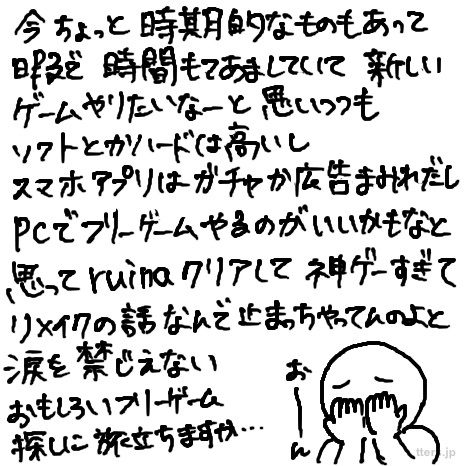 今ちょっと時期的なものもあって
暇で時間もてあましていて 新しい
ゲームやりたいなーと思いつつも
ソフトとかハードは高いし
スマホアプリはガチャか広告まみれだし
PCでフリーゲームやるのがいいかもなと
思って ruina クリアして 神ゲーすぎて
リメイクの話なんで止まっちゃってんのよと
涙を禁じえない
おもしろいフリーゲーム
探しに旅立ちますか…
おーん